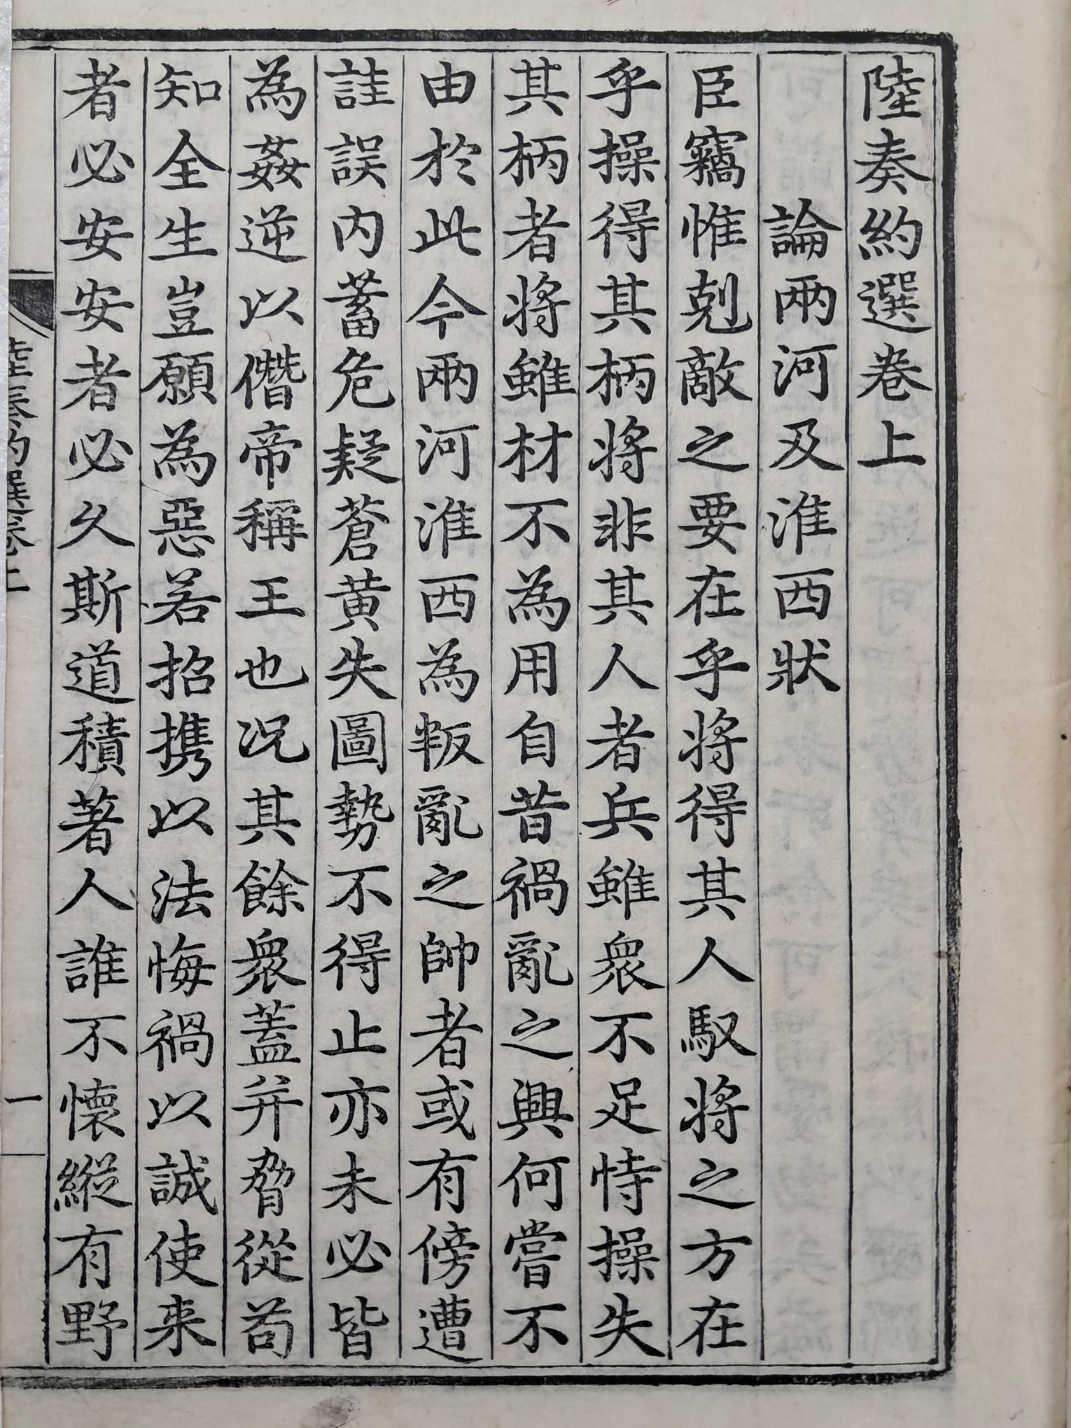 陸奏約選卷上
論兩河及淮西狀
臣竊惟剋敵之要在乎將得其人馭將之方在
乎操得其柄將非其人者兵雖衆不足恃操失
其柄者將雖材不為用自昔禍亂之興何嘗不
由於此今兩河淮西為叛亂之帥者或有傍遭
詿誤内蓄危疑蒼黃失圖勢不得止亦未必皆
為姦逆以僭帝稱王也况其餘衆蓋并脅從苟
知全生豈願為惡若招携以法悔禍以誠使来
者必安安者必久斯道積著人誰不懷縱有野
陸奏約選卷上
一